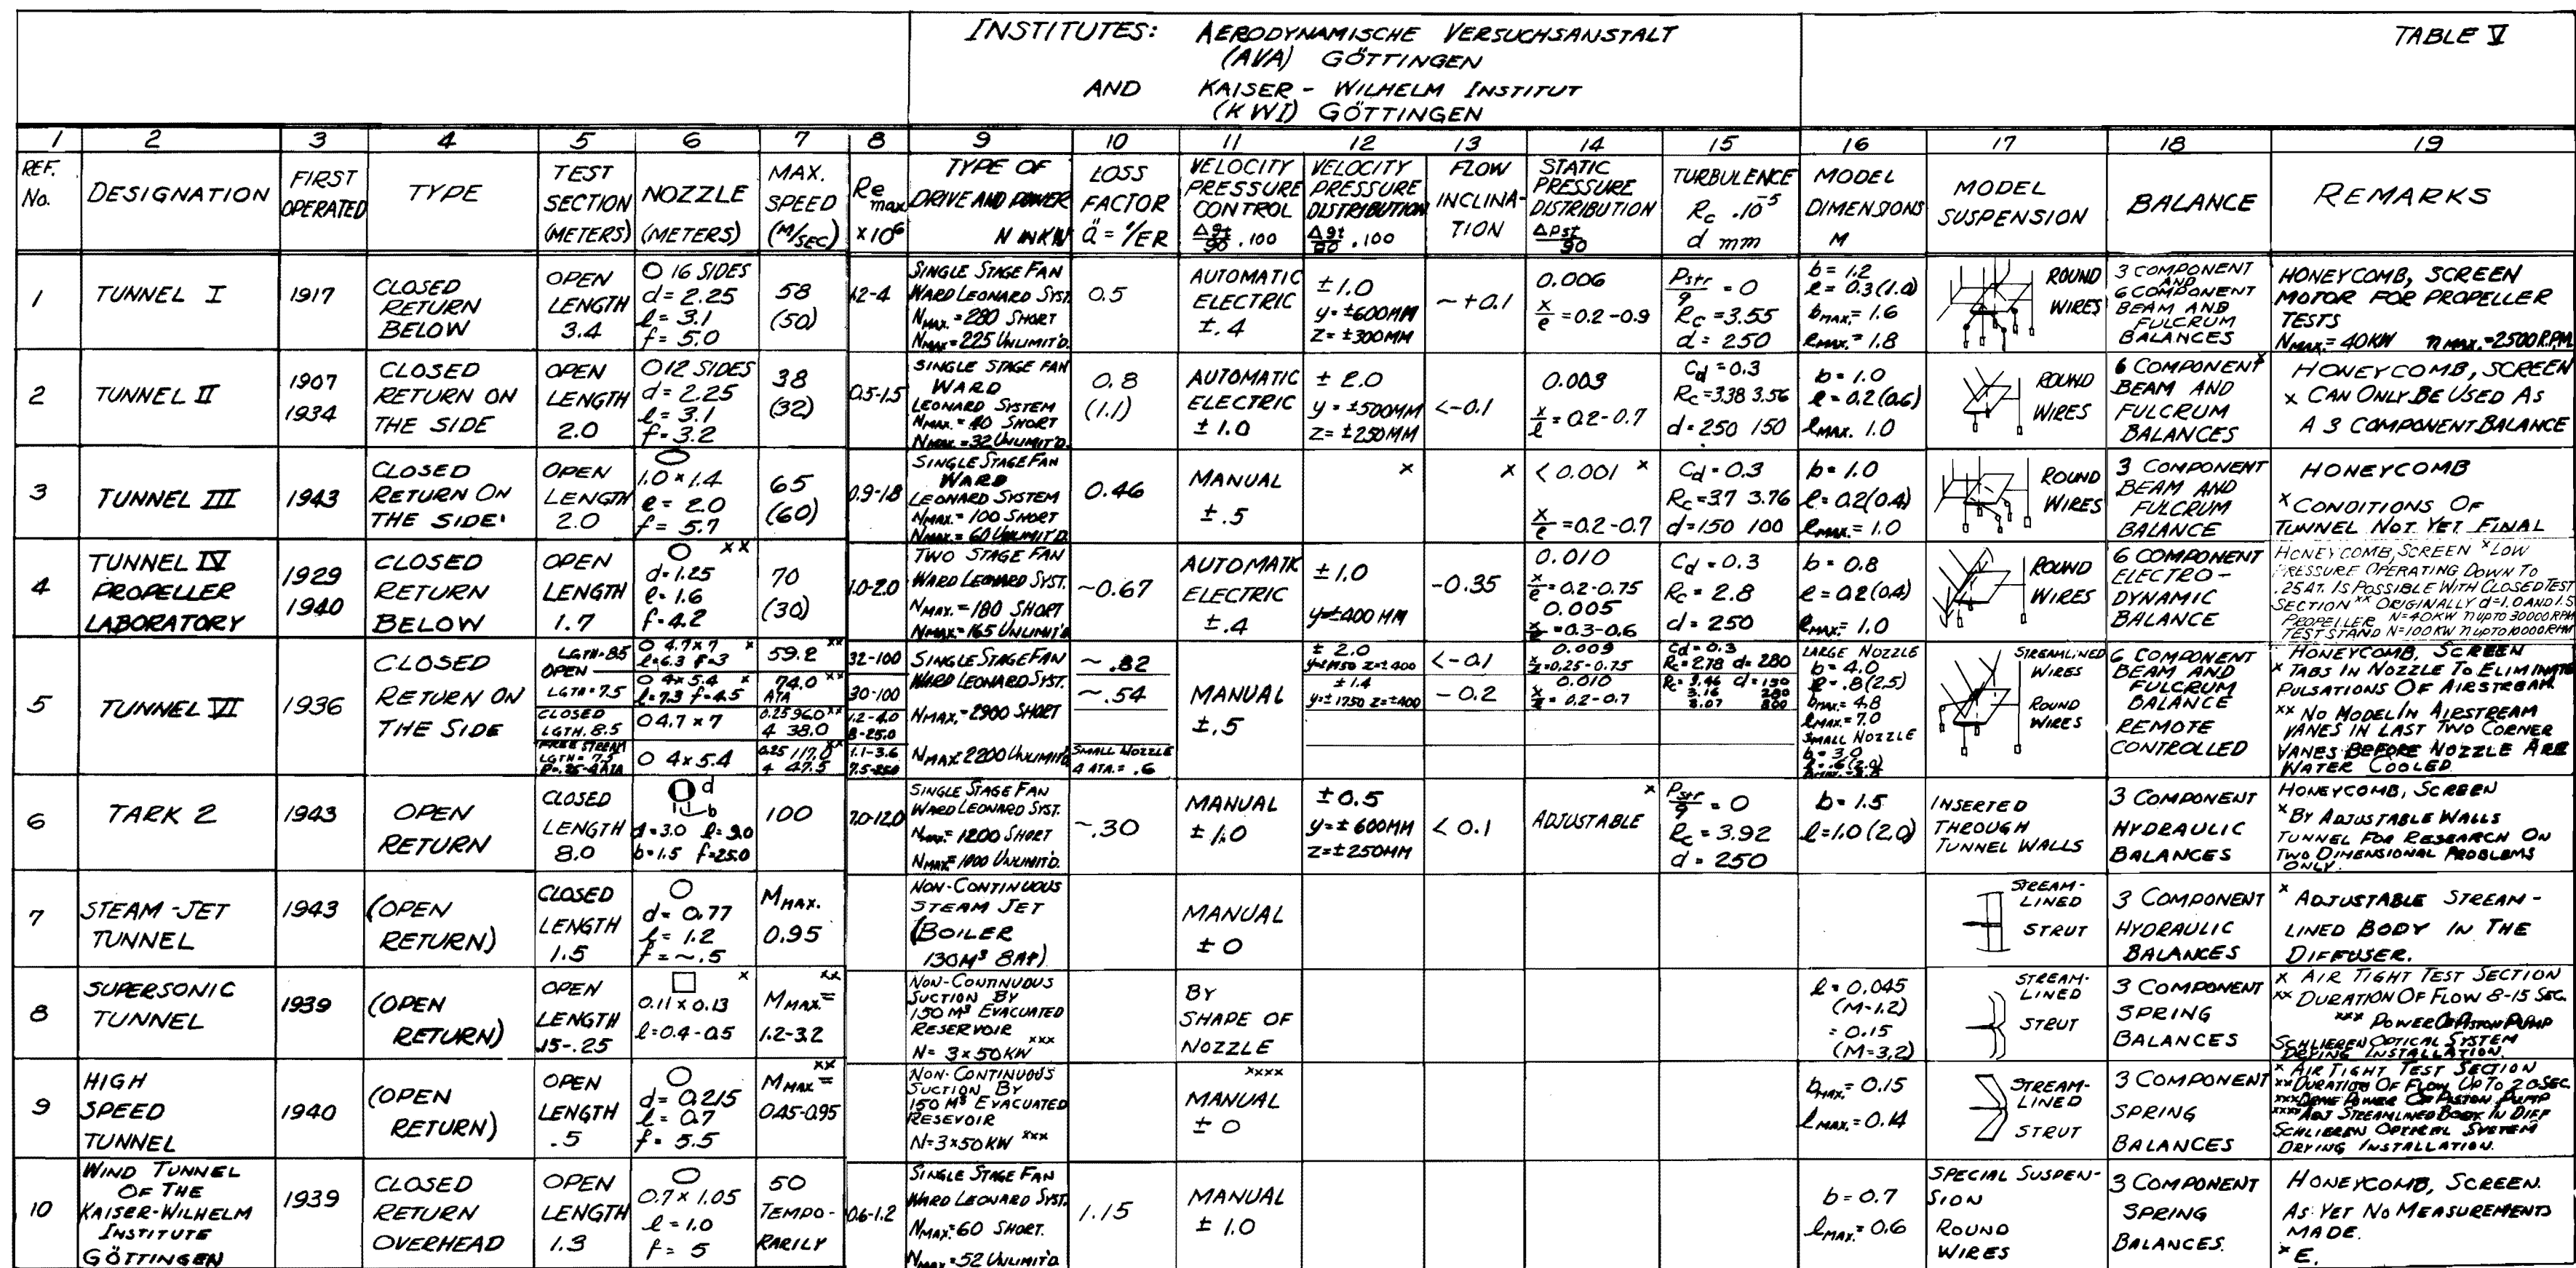 INSTITUTES: AERODYNAMISCHE VERSUCHSANSTALT
(AVA) GÖTTINGEN
AND KAISER - WILHELM INSTITUT
(KWI) GÖTTINGEN
TABLE V
1 2 3 4 5 6 7 8 9 10 11 12 13 14 15 16 17 18 19
REF. No.
DESIGNATION
FIRST OPERATED
TYPE
TEST SECTION (METERS)
NOZZLE (METERS)
MAX. SPEED (M/SEC)
Re max ×10⁶
TYPE OF DRIVE AND POWER N IN KW
LOSS FACTOR ä = 1/ER
VELOCITY PRESSURE CONTROL .100
VELOCITY PRESSURE DISTRIBUTION .100
FLOW INCLINATION
STATIC PRESSURE DISTRIBUTION
TURBULENCE Rc .10⁻⁵ d mm
MODEL DIMENSIONS M
MODEL SUSPENSION
BALANCE
REMARKS
1
TUNNEL I
1917
CLOSED RETURN BELOW
OPEN LENGTH 3.4
O 16 SIDES d=2.25 l=3.1 f=5.0
58 (50)
SINGLE STAGE FAN WARD LEONARD SYST. NMAX.=280 SHORT NMAX=225 UNLIMIT'D.
0.5
AUTOMATIC ELECTRIC ±.4
±1.0 y=±600MM z=±300MM
~+0.1
0.006 x/e=0.2-0.9
Pstr/q=0 Rc=3.55 d=250
b=1.2 l=0.3(1.0) bMAX.=1.6 lMAX.=1.8
ROUND WIRES
3 COMPONENT AND 6 COMPONENT BEAM AND FULCRUM BALANCES
HONEYCOMB, SCREEN MOTOR FOR PROPELLER TESTS NMAX.=40KW n MAX.=2500 R.P.M.
2
TUNNEL II
1907 1934
CLOSED RETURN ON THE SIDE
OPEN LENGTH 2.0
O 12 SIDES d=2.25 l=3.1 f=3.2
38 (32)
0.5-1.5
SINGLE STAGE FAN WARD LEONARD SYSTEM NMAX.=40 SHORT NMAX.=32 UNLIMIT'D.
0.8 (1.1)
AUTOMATIC ELECTRIC ±1.0
±2.0 y=±500MM z=±250MM
<-0.1
0.003 x/l=0.2-0.7
Cd=0.3 Rc=3.38 3.56 d=250 150
b=1.0 l=0.2(0.6) lMAX. 1.0
ROUND WIRES
6 COMPONENT x BEAM AND FULCRUM BALANCES
HONEYCOMB, SCREEN
x CAN ONLY BE USED AS A 3 COMPONENT BALANCE
3
TUNNEL III
1943
CLOSED RETURN ON THE SIDE
OPEN LENGTH 2.0
1.0×1.4 l=2.0 f=5.7
65 (60)
0.9-1.8
SINGLE STAGE FAN WARD LEONARD SYSTEM NMAX.=100 SHORT NMAX.=60 UNLIMIT'D
0.46
MANUAL ±.5
x
x
<0.001 x x/e=0.2-0.7
Cd=0.3 Rc=3.7 3.76 d=150 100
b=1.0 l=0.2(0.4) lMAX.=1.0
ROUND WIRES
3 COMPONENT BEAM AND FULCRUM BALANCE
HONEYCOMB
x CONDITIONS OF TUNNEL NOT YET FINAL
4
TUNNEL IV PROPELLER LABORATORY
1929 1940
CLOSED RETURN BELOW
OPEN LENGTH 1.7
O xx d=1.25 l=1.6 f=4.2
70 (30)
1.0-2.0
TWO STAGE FAN WARD LEONARD SYST. NMAX.=180 SHORT NMAX=165 UNLIMIT'D
~0.67
AUTOMATIC ELECTRIC ±.4
±1.0 y=±400 MM
-0.35
0.010 x/e=0.2-0.75 0.005 =0.3-0.6
Cd=0.3 Rc=2.8 d=250
b=0.8 l=0.2(0.4) lMAX.=1.0
ROUND WIRES
6 COMPONENT ELECTRO-DYNAMIC BALANCE
HONEYCOMB, SCREEN x LOW PRESSURE OPERATING DOWN TO .25 AT. IS POSSIBLE WITH CLOSED TEST SECTION xx ORIGINALLY d=1.0 AND 1.5
PROPELLER N=40KW n UP TO 30000 RPM
TEST STAND N=100KW n UP TO 10000 RPM
5
TUNNEL VI
1936
CLOSED RETURN ON THE SIDE
LGTH=8.5 OPEN LGTH=7.5
CLOSED LGTH. 8.5
FREE STREAM LGTH=7.5 P=.25-4 ATA
O 4.7×7 x l=6.3 f=3
O 4×5.4 x l=7.3 f=4.5
O 4.7×7
O 4×5.4
59.2 xx
74.0 xx
ATA 0.25 96.0 xx 4 38.0
0.25 117.0 xx 4 47.5
32-100
30-100
1.2-4.0 8-25.0
1.1-3.6
SINGLE STAGE FAN WARD LEONARD SYST. NMAX.=2900 SHORT NMAX.2200 UNLIMIT'D
~.82
~.54
SMALL NOZZLE 4 ATA.=.6
MANUAL ±.5
±2.0 z=±400
±1.4 y=±1750 z=±400
<-0.1
-0.2
0.009 =0.25-0.75
0.010 =0.2-0.7
Cd=0.3 Rc=2.78 d=280
Rc=3.46 d=150
3.16 280
3.07 800
LARGE NOZZLE b=4.0 l=.8(2.5) bMAX.=4.8 lMAX.=7.0
SMALL NOZZLE b=3.0 l=.6(2.0)
STREAMLINED WIRES
ROUND WIRES
6 COMPONENT BEAM AND FULCRUM BALANCE REMOTE CONTROLLED
HONEYCOMB, SCREEN
x TABS IN NOZZLE TO ELIMINATE PULSATIONS OF AIRSTREAM.
xx NO MODEL IN AIRSTREAM VANES IN LAST TWO CORNER VANES BEFORE NOZZLE ARE WATER COOLED.
6
TARK 2
1943
OPEN RETURN
CLOSED LENGTH 8.0
d b d=3.0 l=9.0 b=1.5 f=25.0
100
7.0-12.0
SINGLE STAGE FAN WARD LEONARD SYST. NMAX.=1200 SHORT NMAX=1000 UNLIMIT'D.
~.30
MANUAL ±1.0
±0.5 y=±600MM z=±250MM
<0.1
x ADJUSTABLE
Pstr/q=0 Rc=3.92 d=250
b=1.5 l=1.0(2.0)
INSERTED THROUGH TUNNEL WALLS
3 COMPONENT HYDRAULIC BALANCES
HONEYCOMB, SCREEN
x BY ADJUSTABLE WALLS
TUNNEL FOR RESEARCH ON TWO DIMENSIONAL PROBLEMS ONLY.
7
STEAM-JET TUNNEL
1943
(OPEN RETURN)
CLOSED LENGTH 1.5
d=0.77 l=1.2 f=~.5
MMAX. 0.95
NON-CONTINUOUS STEAM JET (BOILER 130M³ 8AP)
MANUAL ±0
STREAM-LINED STRUT
3 COMPONENT HYDRAULIC BALANCES
x ADJUSTABLE STREAM-LINED BODY IN THE DIFFUSER.
8
SUPERSONIC TUNNEL
1939
(OPEN RETURN)
OPEN LENGTH .15-.25
x 0.11×0.13 l=0.4-0.5
xx MMAX.= 1.2-3.2
NON-CONTINUOUS SUCTION BY 150 M³ EVACUATED RESERVOIR N=3×50KW xxx
BY SHAPE OF NOZZLE
l=0.045 (M-1.2) =0.15 (M=3.2)
STREAM-LINED STRUT
3 COMPONENT SPRING BALANCES
x AIR TIGHT TEST SECTION
xx DURATION OF FLOW 8-15 SEC.
xxx POWER OF PISTON PUMP
SCHLIEREN OPTICAL SYSTEM
DRYING INSTALLATION.
9
HIGH SPEED TUNNEL
1940
(OPEN RETURN)
OPEN LENGTH .5
d=0.215 l=0.7 f=5.5
xx MMAX= 0.45-0.95
NON-CONTINUOUS SUCTION BY 150 M³ EVACUATED RESEVOIR N=3×50KW xxx
xxxx MANUAL ±0
bMAX.=0.15 lMAX.=0.14
STREAM-LINED STRUT
3 COMPONENT SPRING BALANCES
x AIR TIGHT TEST SECTION
xx DURATION OF FLOW UP TO 20 SEC.
POWER OF PISTON PUMP
xxxx ADJ STREAMLINED BODY IN DIFF
SCHLIEREN OPTICAL SYSTEM
DRYING INSTALLATION.
10
WIND TUNNEL OF THE KAISER-WILHELM INSTITUTE GÖTTINGEN
1939
CLOSED RETURN OVERHEAD
OPEN LENGTH 1.3
0.7×1.05 l=1.0 f=5
50 TEMPO-RARILY
0.6-1.2
SINGLE STAGE FAN WARD LEONARD SYST. NMAX.=60 SHORT. NMAX.=52 UNLIMIT'D
1.15
MANUAL ±1.0
b=0.7 lMAX.=0.6
SPECIAL SUSPEN-SION ROUND WIRES
3 COMPONENT SPRING BALANCES.
HONEYCOMB, SCREEN.
AS YET NO MEASUREMENTS MADE.
x E.